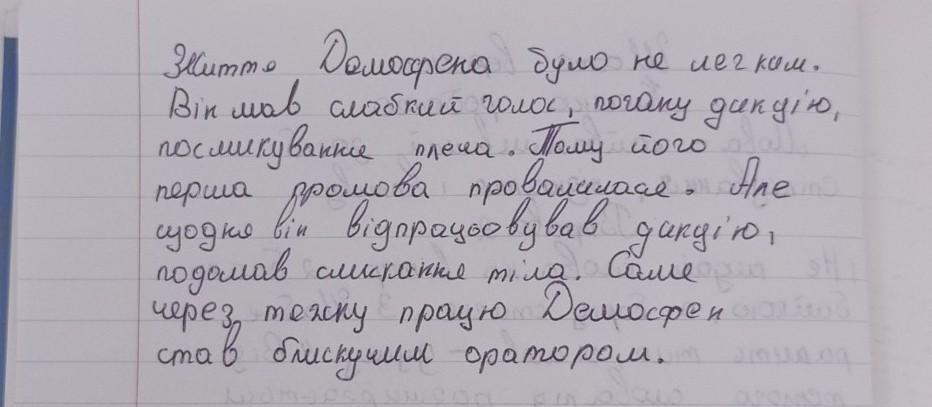 Життя Демосфена було не легким.
Він мав слабкий голос, погану дикцію,
посмикування плеча. Тому його
перша промова провалилася. Але
щодня він відпрацьовував дикцію,
подолав смикання тіла. Саме
через тяжку працю Демосфен
став блискучим оратором.